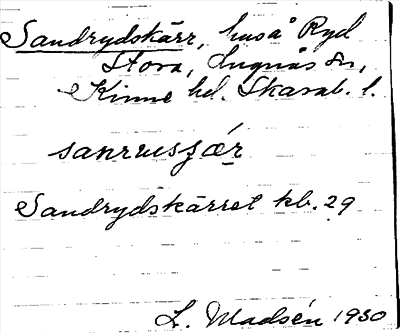 Sandrydskärr, huså Ryd
Stora, Lugnås sn,
Kinne hd. Skarab. l.
sanrusjær
Sandrydskärret kb. 29
L. Madsén 1930